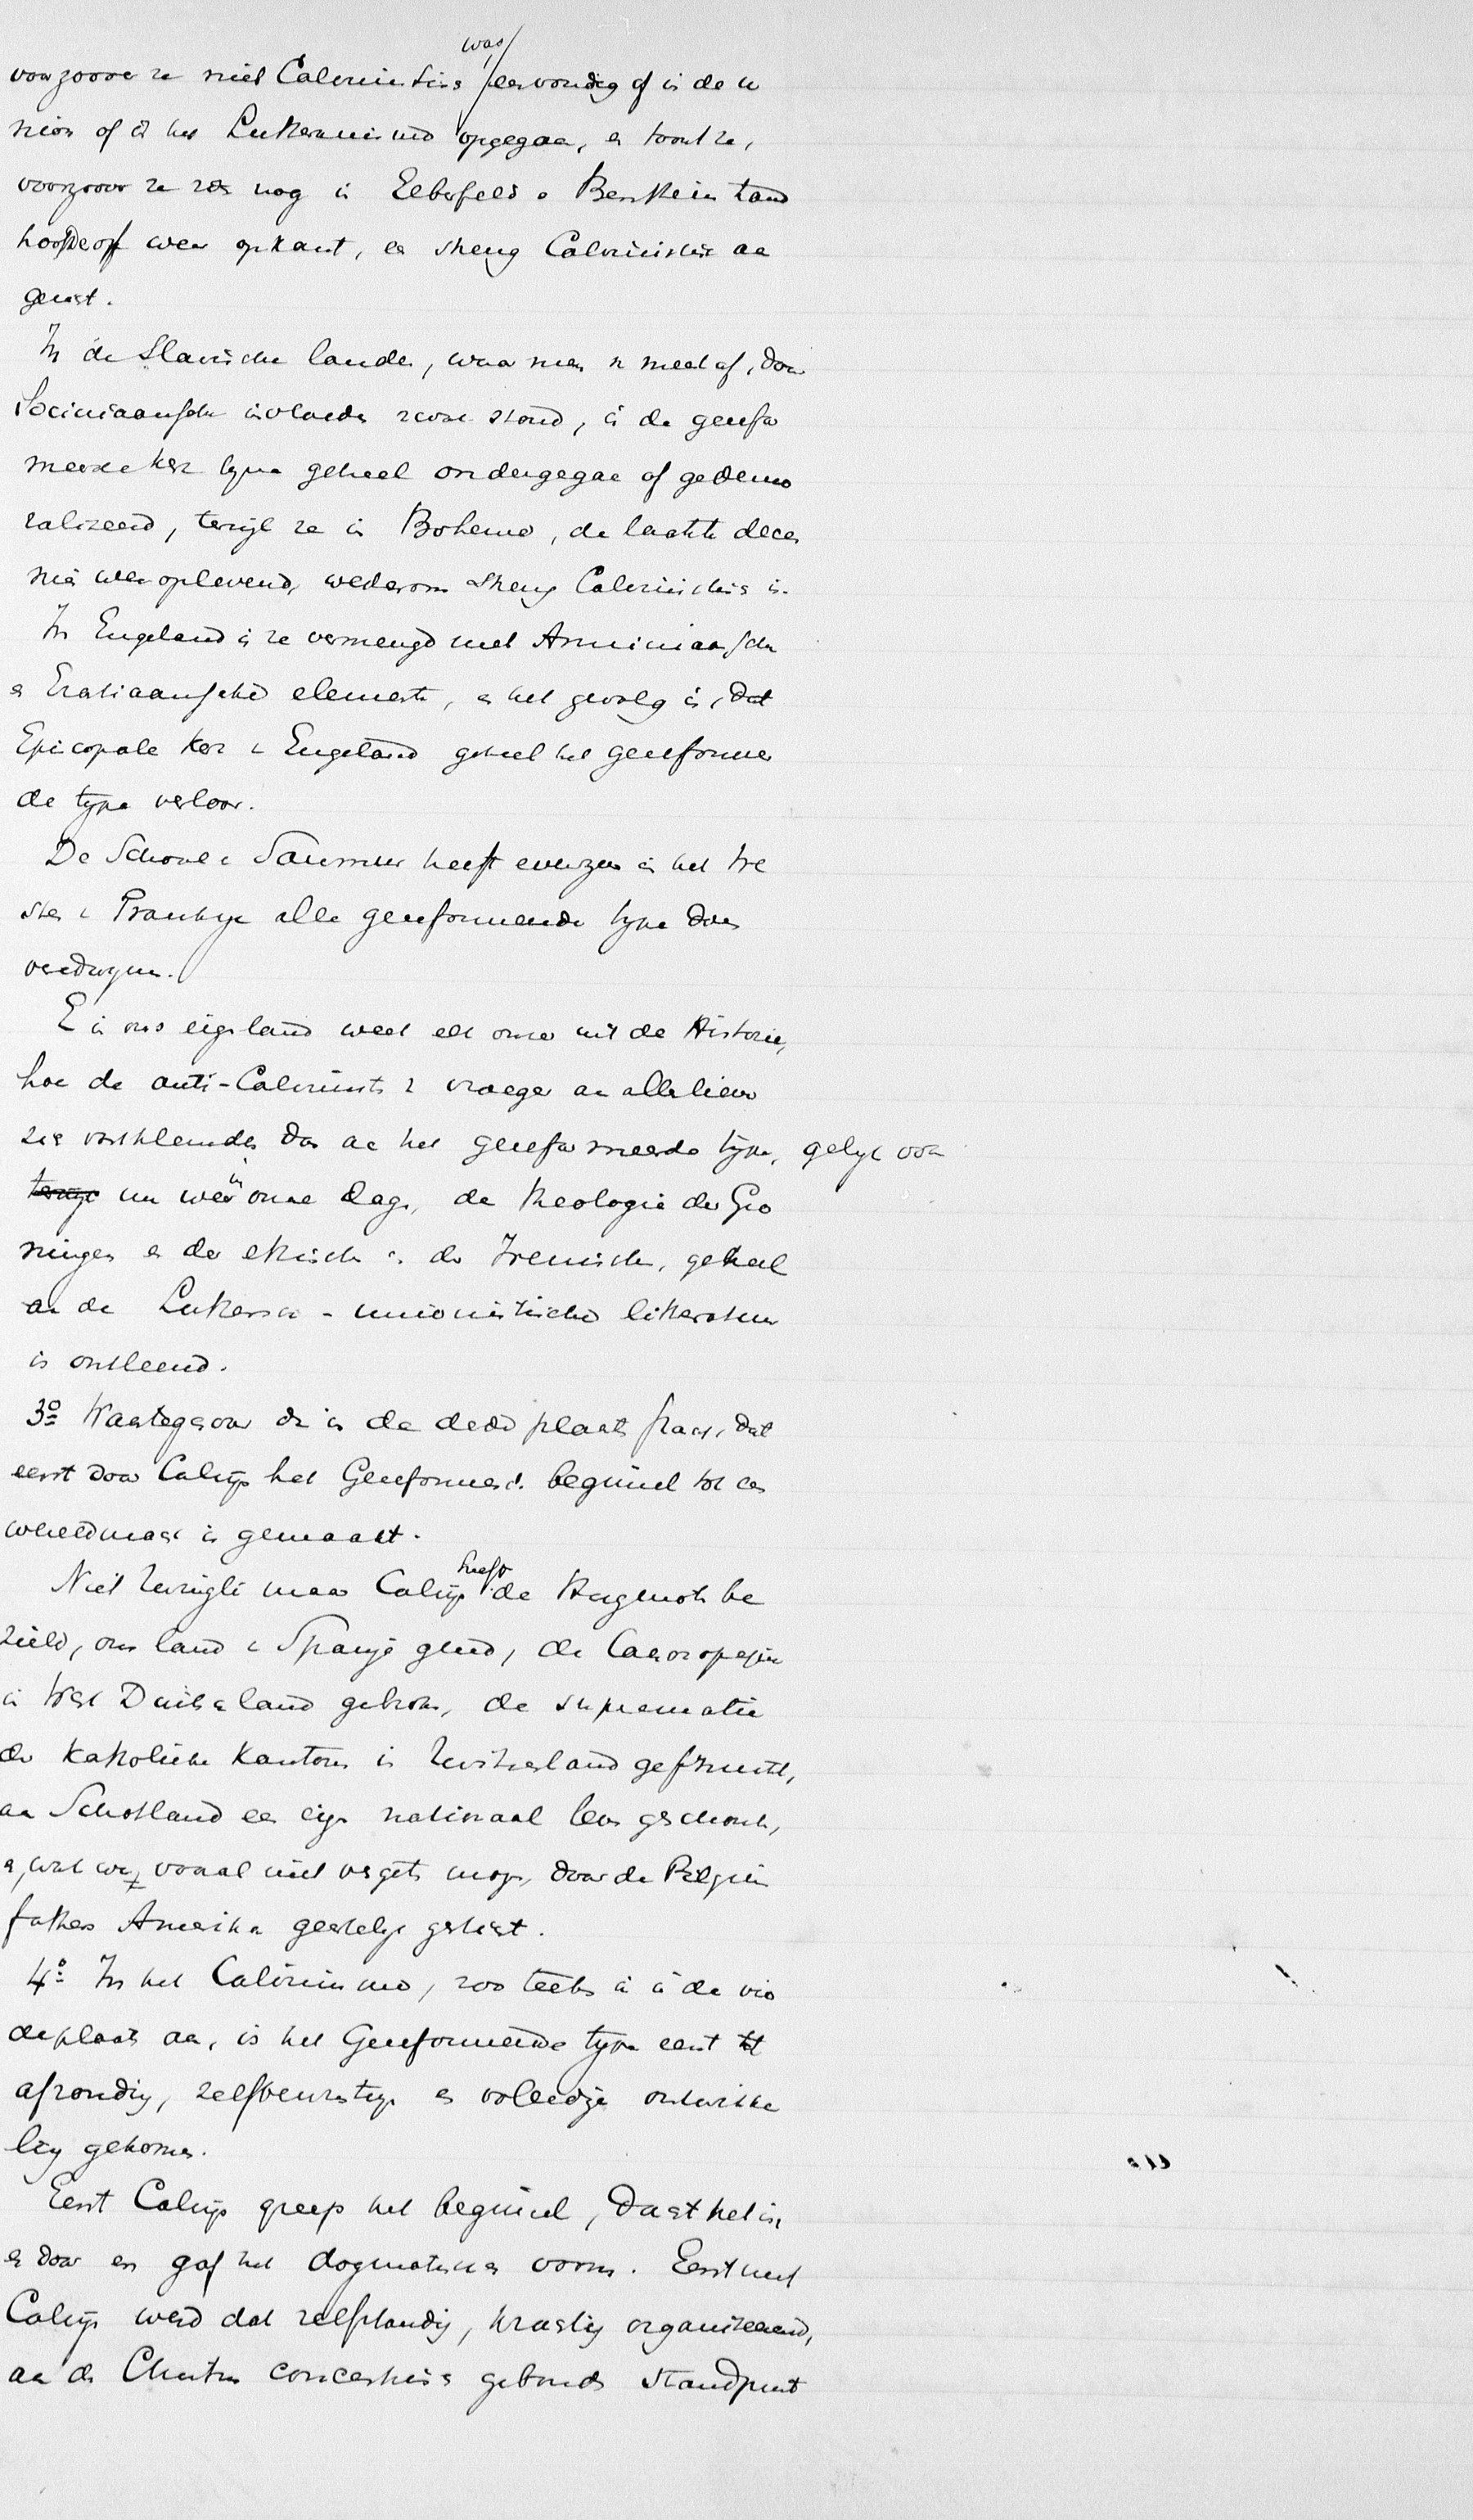 voorzoover ze niet Calvinistis was, eenvoudig of in de u
nion of in het Lutheranisme opgegaa, e toont ze,
voorzoover ze zich nog in Elberfeld e Bentheim stand
hoofdeoff weer opkant, ee streng Calvinistis aa
gezicht.
In de Slavische lande, waar men er meest af, door
Sociniaansche invloede zwak stond, is de gerefor
meerde kerk lijna geheel ondergegaa of gedemo
raliseerd, terwijl ze in Boheme, de laatste decen
niä weer oplevend, wederom streng Calvinistis is.
In Engeland is ze vermengd met Arminiaansche
e Erastiaansche elemente, e het gevolg is, dat
Episcopale kerk i Engeland geheel het gereformeer
de type verloor.
De School v Saumur heeft evenzoo in het We
ste v Frankrijk alle gereformeerde type doen
verdwijnen.
E in ons eige land weet elk onze uit de Historie,
hoe de anti-Calvinisten z vroeger aa alle liever
zie vastklemde dan aa het gereformeerde type, gelijk ook
terwijl nu weer in onze dage, de theologie der Gro
ninger e der ethische e de Irenische, geheel
aa de Luthersche - unionistische litteratuur
is ontleend.
3º Waartegenover dan in de derde plaats staat, dat
eerst door Calvijn het Gereformeerd. beginsel tot een
wereldmacht is gemaakt.
Niet Zwingli maar Calvijn heeft de Hugenots be
zield, ons land v Spanje gered, de Caesaropapie
in West Duitschland gebroke, de suprematie
der Katholieke Kantons in Zwitserland gefnuikt,
aa Schotland ee eige nationaal leve geschonke,
e, wat wij vooral niet vergete moge, door de Pilgrim
fathers Amerika geestelijk gesticht.
4º In het Calvinisme, zoo teeken ik in de vier
de plaats aa, is het Gereformeerde type eerst tot
afronding, zelfbewustzijn e volledige ontwikke
ling gekomen.
Eerst Calvijn greep het beginsel, dacht het in
e door en gaf het dogmatische vorm. Eerst met
Calvijn werd dat zelfstandig, krachtig organiseerend,
aa de Christus concentries gebonde standpunt